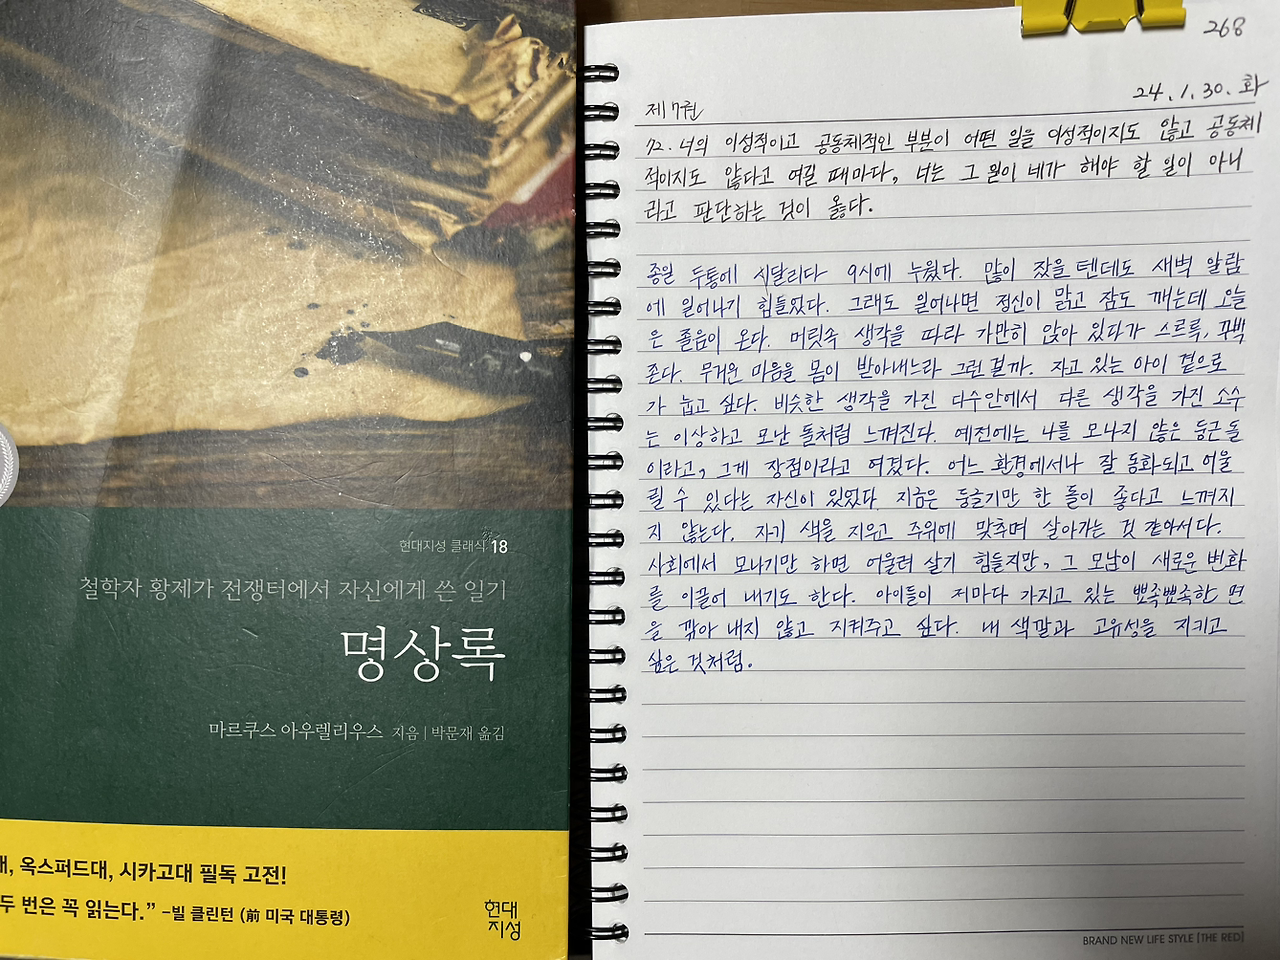 현대지성 클래식 18
철학자 황제가 전쟁터에서 자신에게 쓴 일기
명상록
마르쿠스 아우렐리우스 지음 | 박문재 옮김
대, 옥스퍼드대, 시카고대 필독 고전!
두 번은 꼭 읽는다.” -빌 클린턴 (前 미국 대통령)
현대
지성
268
24.1.30.화
제7권
72. 너의 이성적이고 공동체적인 부분이 어떤 일을 이성적이지도 않고 공동체
적이지도 않다고 여길 때마다, 너는 그 일이 네가 해야 할 일이 아니
라고 판단하는 것이 옳다.
종일 두통에 시달리다 9시에 누웠다. 많이 잤을 텐데도 새벽 알람
에 일어나기 힘들었다. 그래도 일어나면 정신이 맑고 잠도 깨는데 오늘
은 졸음이 온다. 머릿속 생각을 따라 가만히 앉아 있다가 스르륵, 꾸벅
존다. 무거운 마음을 몸이 받아내느라 그런 걸까. 자고 있는 아이 곁으로
가 눕고 싶다. 비슷한 생각을 가진 다수안에서 다른 생각을 가진 소수
는 이상하고 모난 돌처럼 느껴진다. 예전에는 나를 모나지 않은 둥근 돌
이라고, 그게 장점이라고 여겼다. 어느 환경에서나 잘 동화되고 어울
릴 수 있다는 자신이 있었다. 지금은 둥글기만 한 돌이 좋다고 느껴지
지 않는다. 자기 색을 지우고 주위에 맞추며 살아가는 것 같아서다.
사회에서 모나기만 하면 어울려 살기 힘들지만, 그 모남이 새로운 변화
를 이끌어 내기도 한다. 아이들이 저마다 가지고 있는 뾰족뾰족한 면
을 깎아 내지 않고 지켜주고 싶다. 내 색깔과 고유성을 지키고
싶은 것처럼.
BRAND NEW LIFE STYLE [THE RED]